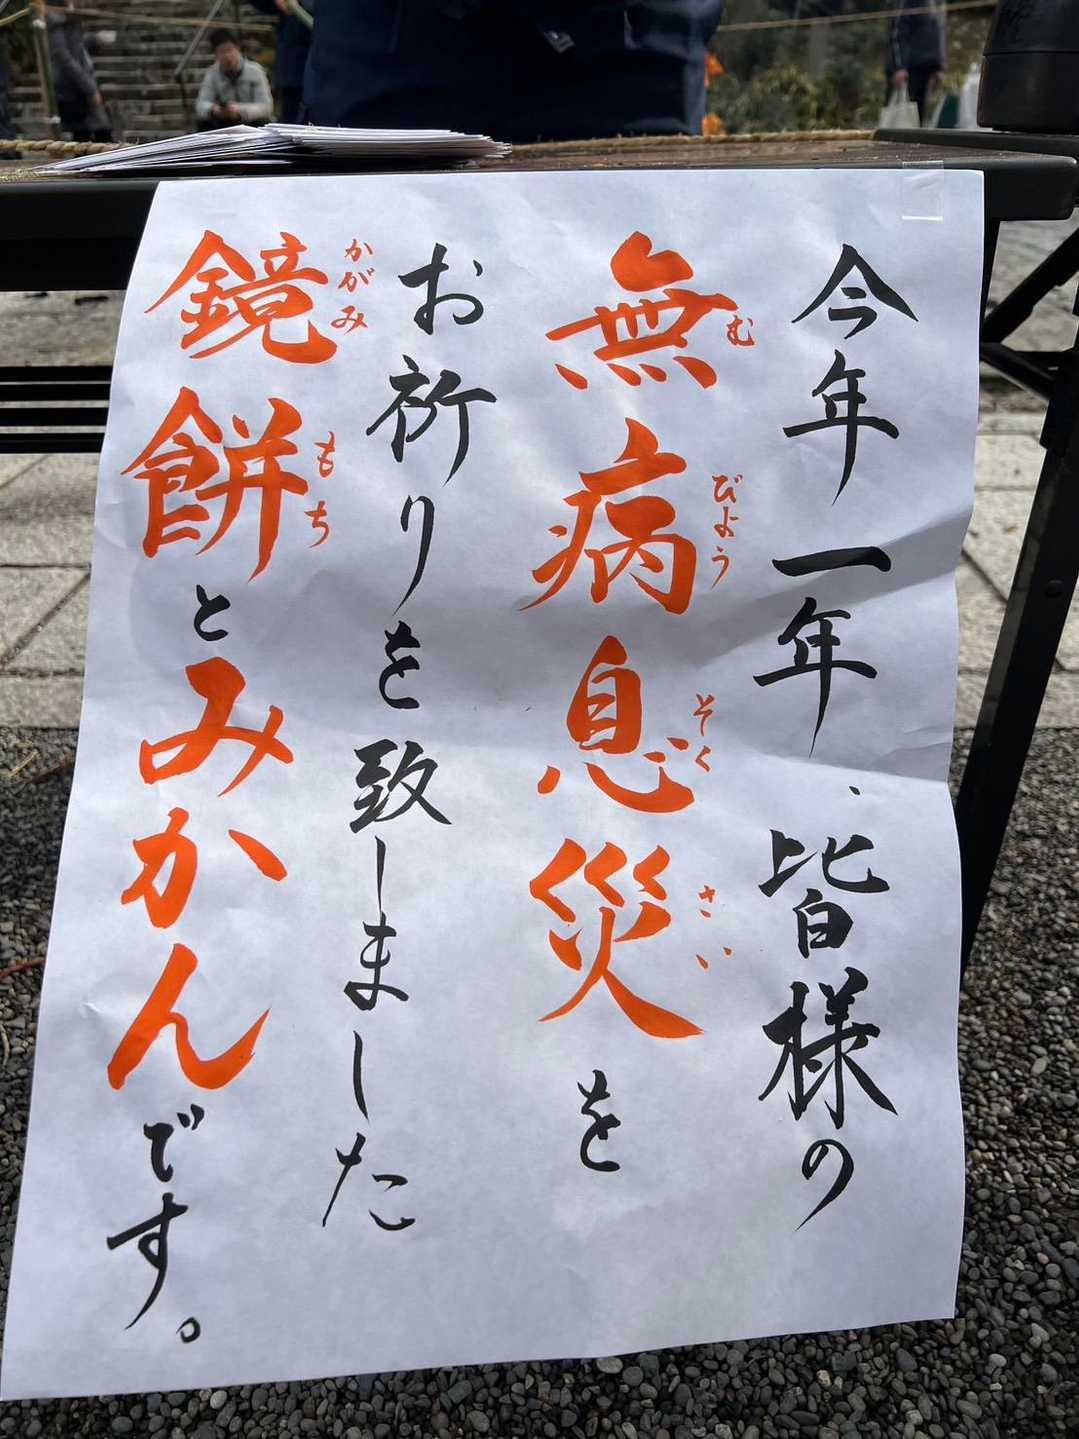 今年一年、皆様の
無病息災を
むびょうそくさい
お祈りを致しました
鏡餅とみかんです。
かがみもち